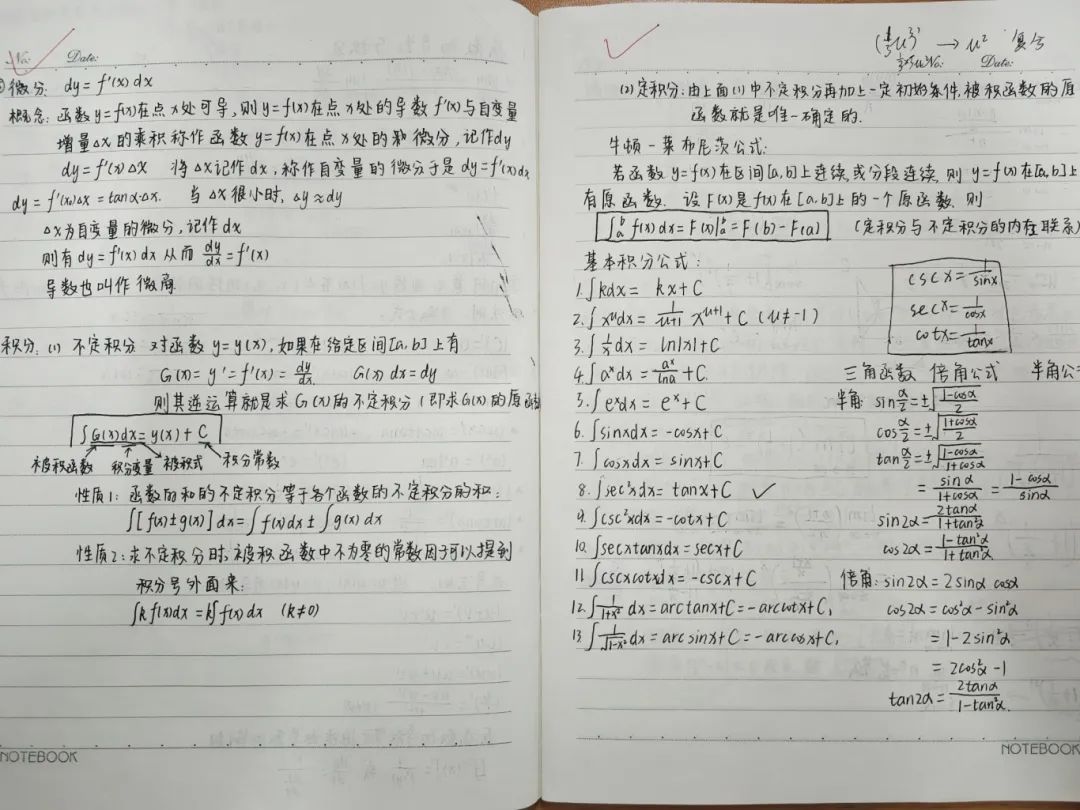 No: Date:
微分: dy = f'(x) dx
概念: 函数 y=f(x)在点 x 处可导, 则 y=f(x)在点 x 处的导数 f'(x)与自变量
增量Δx的乘积称作函数 y=f(x)在点 x 处的 微分, 记作dy
dy = f'(x)Δx 将Δx记作dx, 称作自变量的微分于是 dy=f'(x)dx
dy = f'(x₀)Δx = tanα·Δx. 当Δx很小时, Δy≈dy
Δx为自变量的微分, 记作dx
则有dy=f'(x)dx 从而 dy/dx = f'(x)
导数也叫作微商
积分: (1) 不定积分 对函数 y=y(x), 如果在给定区间[a,b]上有
G(x) = y' = f'(x) = dy/dx. G(x) dx = dy
则其逆运算就是求G(x)的不定积分(即求G(x)的原函数
∫G(x)dx = y(x) + C
被积函数 积分变量 被积式 积分常数
性质1: 函数的和的不定积分等于各个函数的不定积分的和:
∫[f(x)±g(x)]dx = ∫f(x)dx ± ∫g(x)dx
性质2: 求不定积分时, 被积函数中不为零的常数因子可以提到
积分号外面来:
∫k f(x)dx = k∫f(x)dx (k≠0)
NOTEBOOK
(⅓u³)' → u² 复合
No: Date:
(2) 定积分: 由上面(1)中不定积分再加上一定初始条件, 被积函数的原
函数就是唯一确定的.
牛顿-莱布尼茨公式:
若函数 y=f(x)在区间[a,b]上连续, 或分段连续, 则 y=f(x)在[a,b]上
有原函数. 设F(x)是f(x)在[a,b]上的一个原函数, 则
∫ₐᵇ f(x)dx = F(x)|ₐᵇ = F(b)-F(a) (定积分与不定积分的内在联系)
基本积分公式:
1. ∫kdx = kx+C
2. ∫xᵘdx = 1/(u+1) xᵘ⁺¹ + C (u≠-1)
3. ∫1/x dx = ln|x|+C
4. ∫aˣdx = aˣ/lna + C.
5. ∫eˣdx = eˣ+C
6. ∫sinxdx = -cosx+C
7. ∫cosxdx = sinx+C
8. ∫sec²xdx = tanx+C ✓
9. ∫csc²xdx = -cotx+C
10. ∫secxtanxdx = secx+C
11. ∫cscxcotxdx = -cscx+C
12. ∫1/(1+x²) dx = arctanx+C = -arccotx+C₁
13. ∫1/√(1-x²) dx = arcsinx+C = -arccosx+C₁
cscx = 1/sinx
secx = 1/cosx
cotx = 1/tanx
三角函数 倍角公式 半角公
半角: sin α/2 = ±√((1-cosα)/2)
cos α/2 = ±√((1+cosα)/2)
tan α/2 = ±√((1-cosα)/(1+cosα))
= sinα/(1+cosα) = (1-cosα)/sinα
sin2α = 2tanα/(1+tan²α)
cos2α = (1-tan²α)/(1+tan²α)
倍角: sin2α = 2sinα cosα
cos2α = cos²α - sin²α
= 1-2sin²α
= 2cos²α -1
tan2α = 2tanα/(1-tan²α).
NOTEBOOK